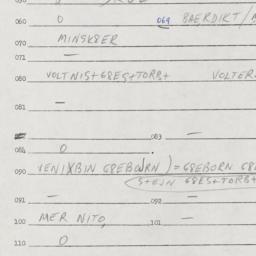 060 0 069 BAERDIKT/
070 MINSK8ER
071 —
080 VOLTNIS+G8ES+TORB+ VOLTER
081 —
083 —
084 0
090 VENIXBIN G8EBORN)=G8EBORN G8
S+EJN G8ES+TORB+
091 — 092 —
100 MER NITO, 101 —
110 0